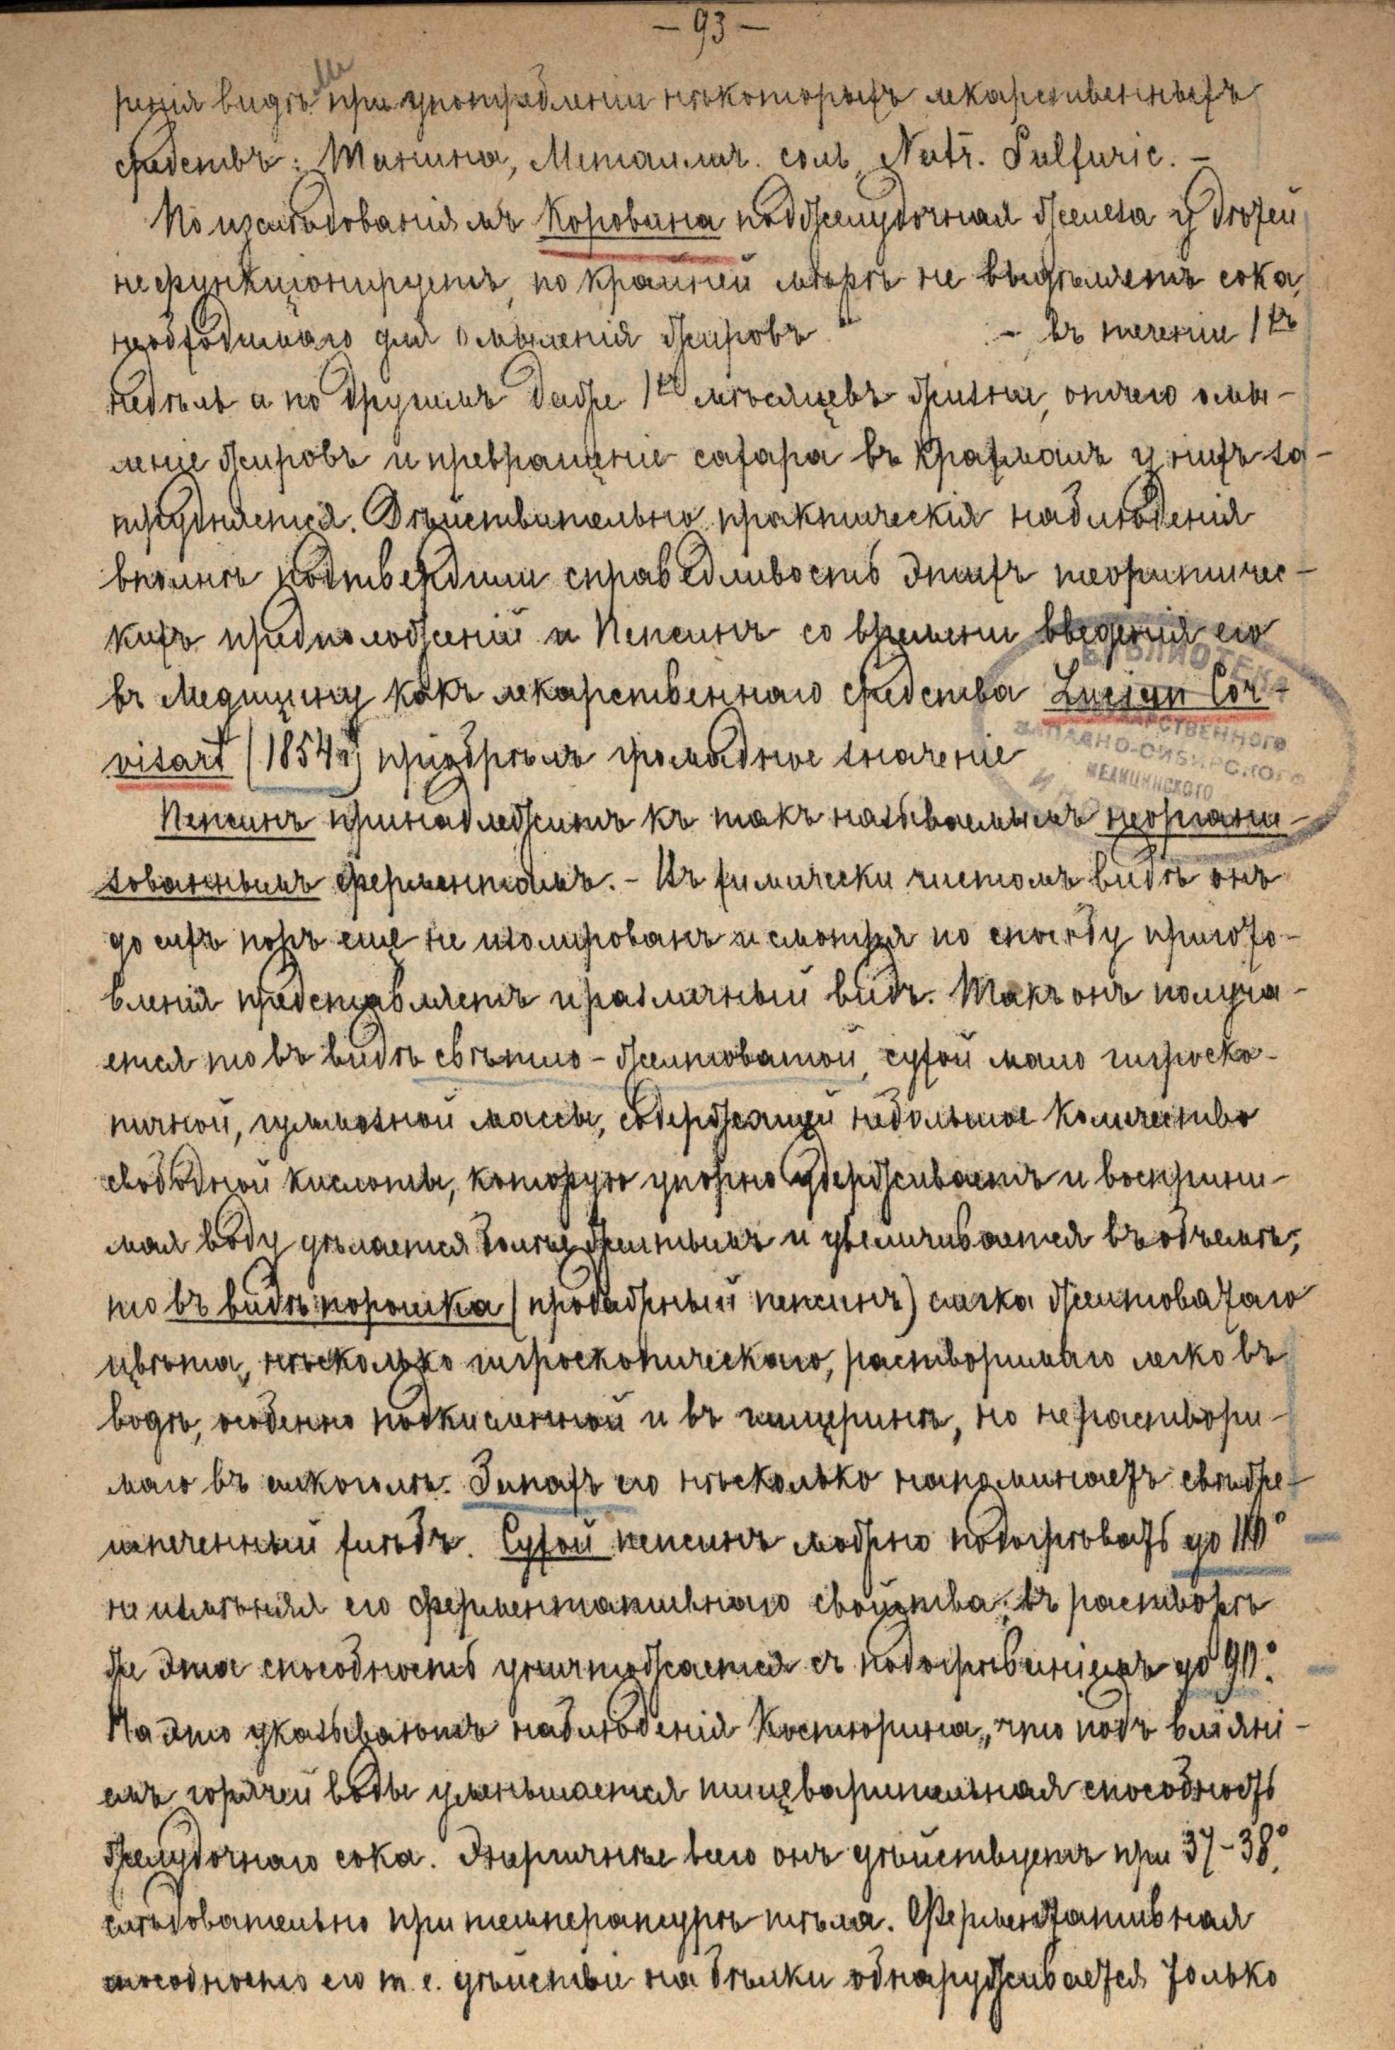 — 93 —
ренія видѣли при употребленіи нѣкоторыхъ лекарственныхъ
средствъ: Танина, Металлич. соли, Natr. Sulfuric. —
По изслѣдованіямъ Коровина поджелудочная железа у дѣтей
не функціонируетъ, по крайней мѣрѣ не выдѣляетъ сока,
необходимаго для омыленія жировъ — въ теченіи 1хъ
недѣль а по другимъ даже 1хъ мѣсяцевъ жизни, отчего омы-
леніе жировъ и превращеніе сахара въ крахмалъ у нихъ за-
трудняется. Дѣйствительно практическія наблюденія
вполнѣ подтвердили справедливость этихъ теоритичес-
кихъ предположеній и Пепсинъ со времени введенія его
въ Медицину какъ лекарственнаго средства Lucien Cor-
visart (1854 г) пріобрѣлъ громадное значеніе
Пепсинъ принадлежитъ къ такъ называемымъ неоргани-
зованнымъ ферментамъ. — Въ химически чистомъ видѣ онъ
до сихъ поръ еще не изолированъ и смотря по способу приготo-
вленія представляетъ и различный видъ. Такъ онъ получа-
ется то въ видѣ свѣтло-желтоватой, сухой мало гигроско-
пичной, гуммозной массы, содержащей небольшое количество
свободной кислоты, которую упорно удерживаетъ и восприни-
мая воду дѣлается болѣе желтымъ и увеличивается въ объемѣ;
то въ видѣ порошка (продажный пепсинъ) слегка желтоватаго
цвѣта, нѣсколько гигроскопическаго, растворимаго легко въ
водѣ, особенно подкисленной и въ глицеринѣ, но не раствори-
маго въ алкоголѣ. Запахъ его нѣсколько напоминаетъ свѣже-
испеченный хлѣбъ. Сухой пепсинъ можно подогрѣвать до 110°
не измѣняя его ферментативнаго свойства; въ растворѣ
же эта способность уничтожается съ подогрѣваніемъ до 90°.
На это указываютъ наблюденія Костюрина, что подъ вліяні-
емъ горячей воды уменьшается пищеварительная способность
желудочнаго сока. Энергичнѣе всего онъ дѣйствуетъ при 37-38°,
слѣдовательно при температурѣ тѣла. Ферментативная
способность его т. е. дѣйствіе на бѣлки обнаруживается только
БИБЛИОТЕКА
ГОСУДАРСТВЕННОГО
ЗАПАДНО-СИБИРСКОГО
МЕДИЦИНСКОГО